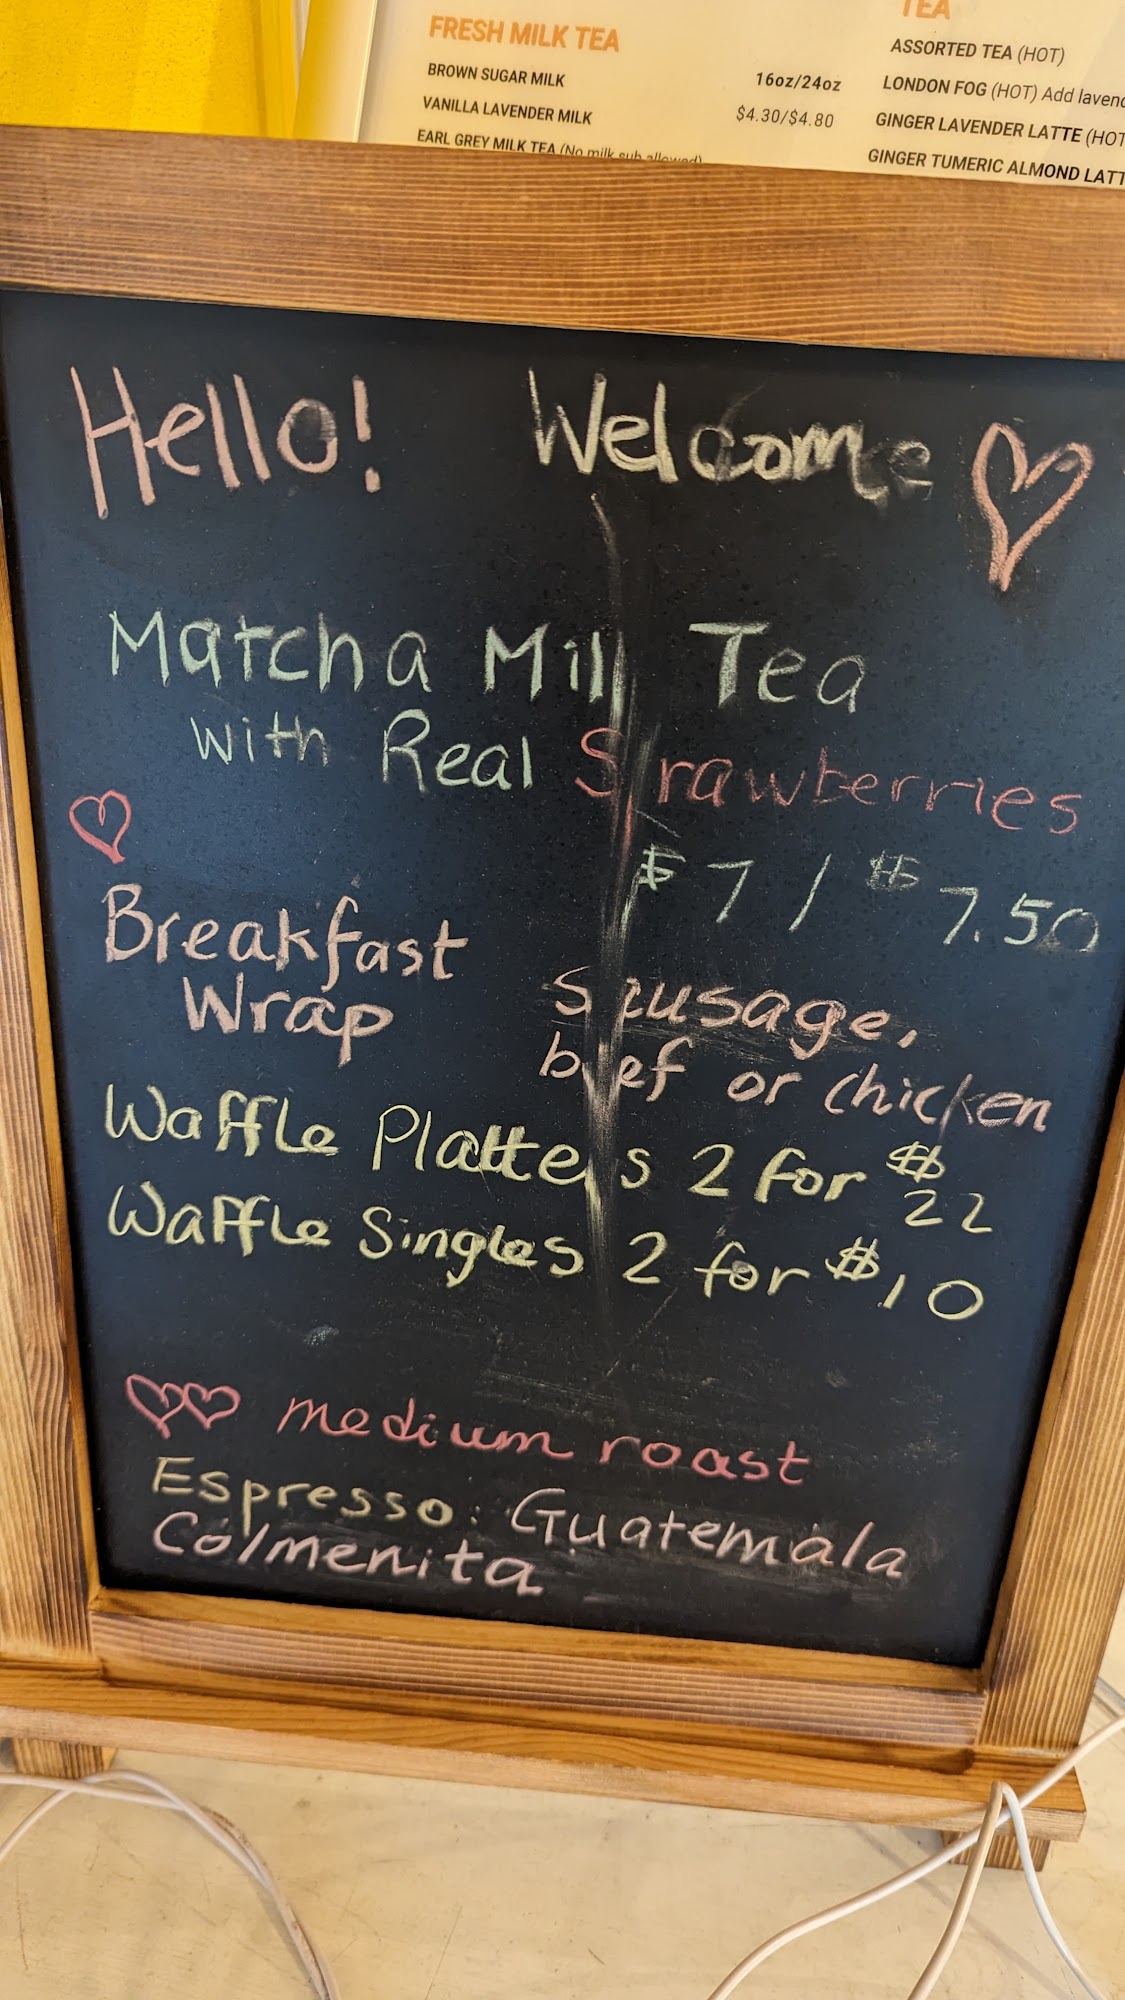 FRESH MILK TEA
BROWN SUGAR MILK 16oz/24oz
VANILLA LAVENDER MILK $4.30/$4.80
EARL GREY MILK TEA (No milk sub allowed)
TEA
ASSORTED TEA (HOT)
LONDON FOG (HOT) Add lavend
GINGER LAVENDER LATTE (HOT
GINGER TUMERIC ALMOND LATT
Hello! Welcome
Matcha Milk Tea
with Real Strawberries
$7 / $7.50
Breakfast
Wrap
Sausage,
beef or chicken
Waffle Platters 2 for $22
Waffle Singles 2 for $10
medium roast
Espresso: Guatemala
Colmenita